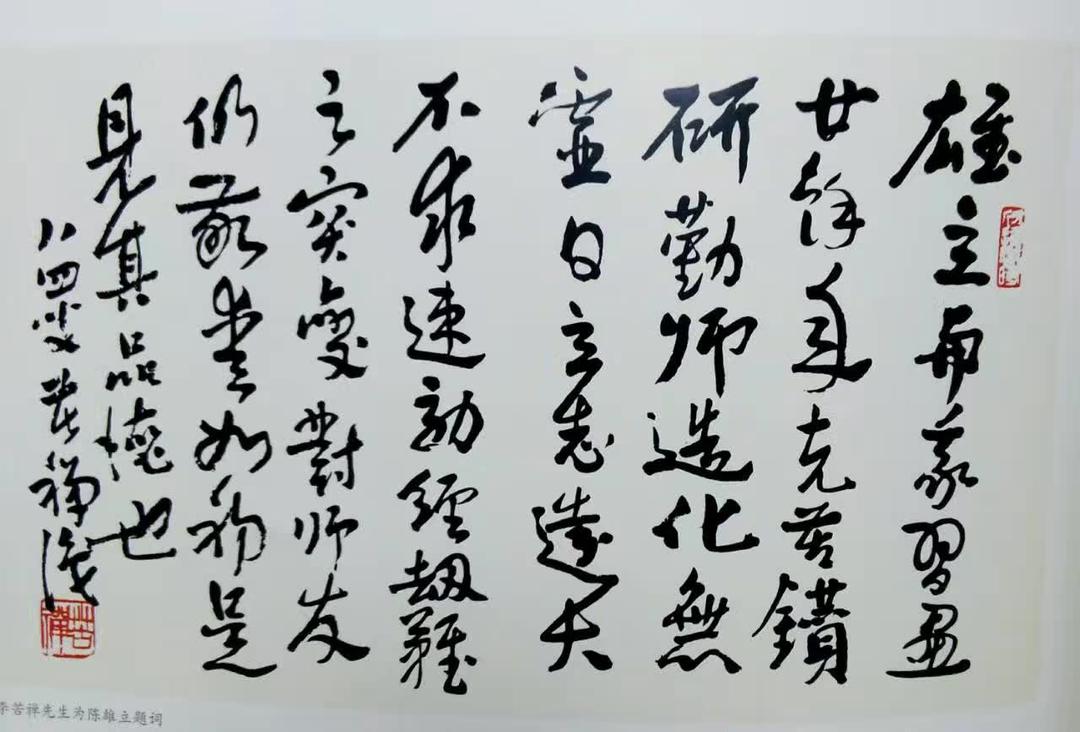 雄立蒙習畫
廿餘年克苦鑽
研勤師造化無
虛日立志遠大
不求速効經劫難
之突變對師友
仍敬爱如初足
見其品德也
八四叟苦禪識
苦禪
李苦禅先生为陈雄立题词